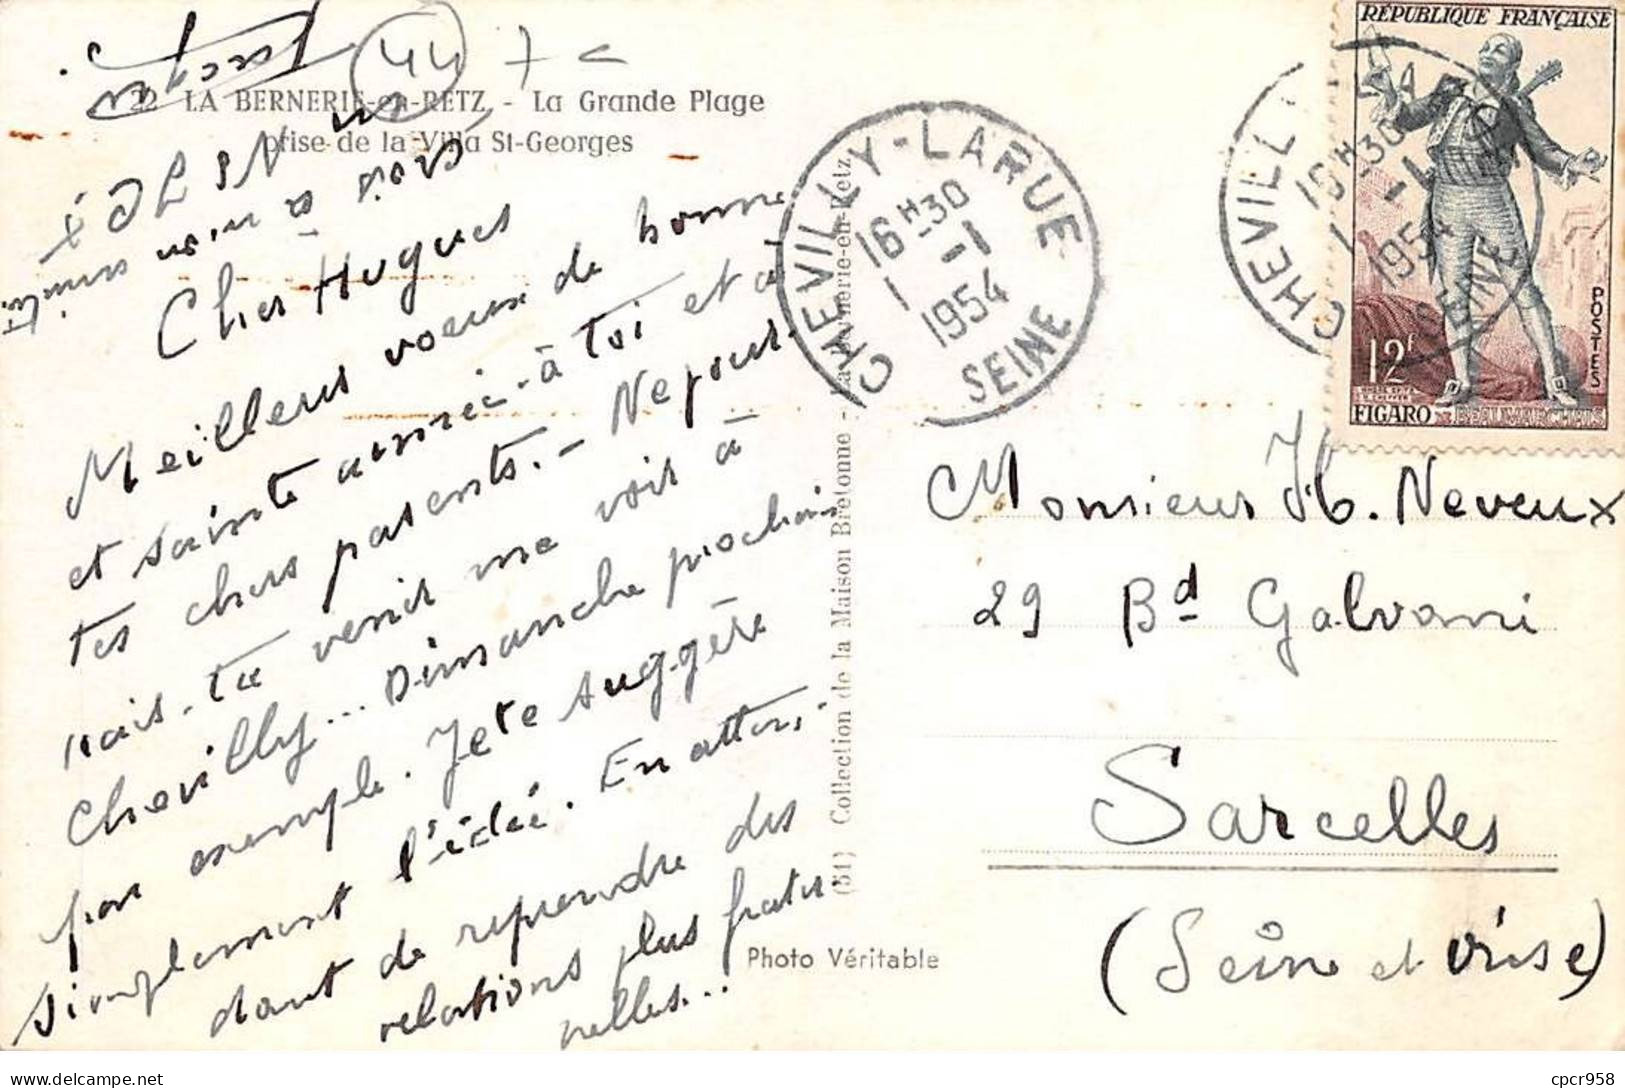 22 LA BERNERIE-en-RETZ - La Grande Plage
prise de la Villa St-Georges
44
Cher Hugues
Meilleurs voeux de bonne
et sainte année à toi et à
tes chers parents. - Ne pour-
rais-tu venir me voir à
Chevilly... Dimanche prochain
par exemple. Je te suggère
simplement l'idée. En atten-
dant de reprendre des
relations plus frater
nelles...
(51) Collection de la Maison Bretonne - La Bernerie-en-Retz
Photo Véritable
CHEVILLY-LARUE
16H30
1-1
1954
SEINE
CHEVILLY-LARUE
16H30
1-1
1954
SEINE
RÉPUBLIQUE FRANÇAISE
POSTES
12F
FIGARO DE BEAUMARCHAIS
Monsieur H. Neveux
29 Bd Galvani
Sarcelles
(Seine et Oise)
cpcr958